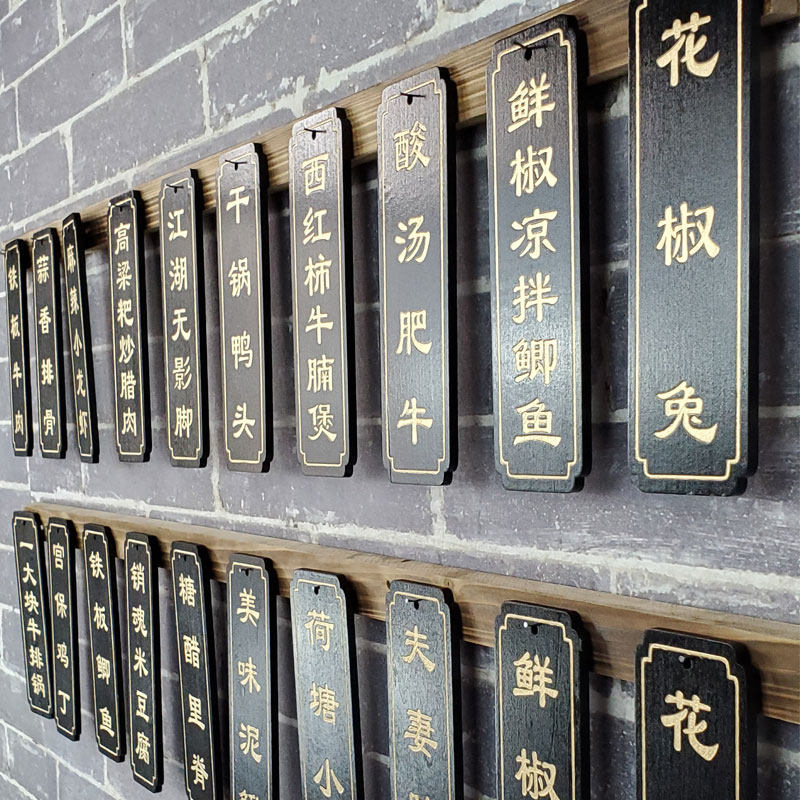 铁板牛肉
蒜香排骨
麻辣小龙虾
高粱粑炒腊肉
江湖无影脚
干锅鸭头
西红柿牛腩煲
酸汤肥牛
鲜椒凉拌鲫鱼
花椒兔
一大块牛排锅
宫保鸡丁
铁板鲫鱼
销魂米豆腐
糖醋里脊
美味泥
荷塘小
夫妻
鲜椒
花